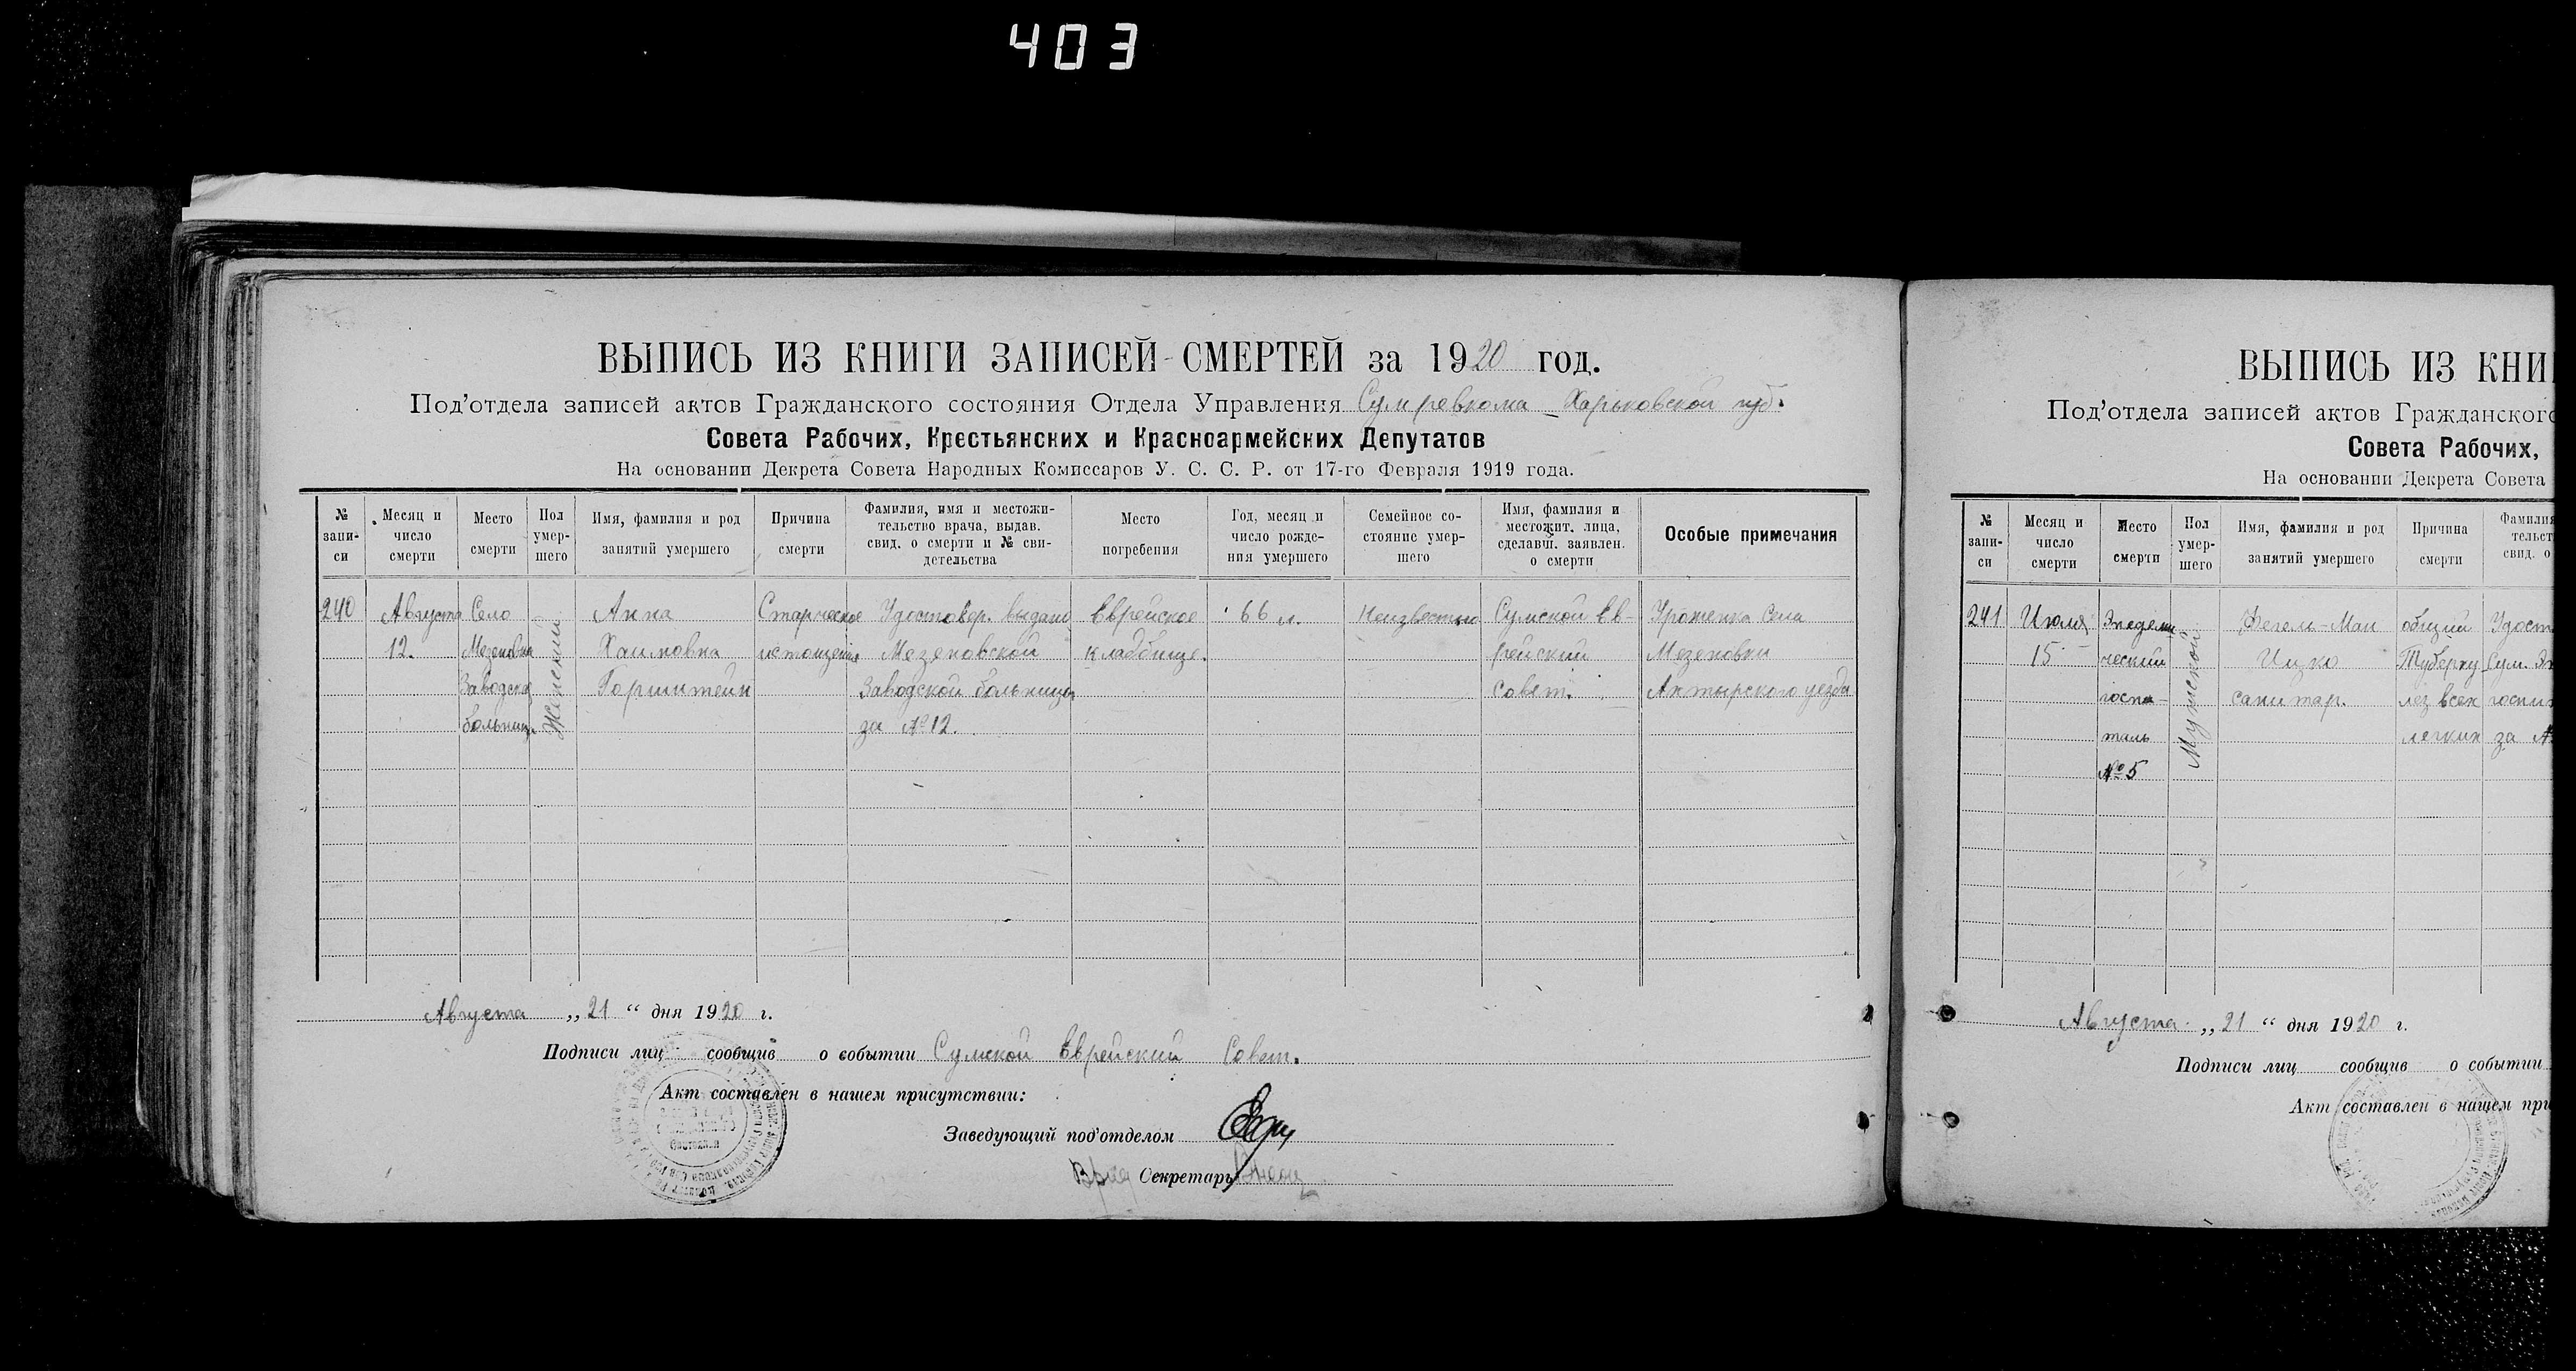 403
ВЫПИСЬ ИЗ КНИГИ ЗАПИСЕЙ СМЕРТЕЙ за 1920 год.
Под'отдела записей актов Гражданского состояния Отдела Управления Сумревкома – Харьковской губ.
Совета Рабочих, Крестьянских и Красноармейских Депутатов
На основании Декрета Совета Народных Комиссаров У. С. С. Р. от 17-го Февраля 1919 года.
№ записи
Месяц и число смерти
Место смерти
Пол умершего
Имя, фамилия и род занятий умершего
Причина смерти
Фамилия, имя и местожительство врача, выдав. свид. о смерти и № свидетельства
Место погребения
Год, месяц и число рождения умершего
Семейное состояние умершего
Имя, фамилия и местожит. лица, сделавш. заявлен. о смерти
Особые примечания
240
Августа
12.
Село
Мезеновка
Заводская
больница
Женский
Анна
Хаимовна
Горинштейн
Старческое
истощение
Удостовер. выдано
Мезеновской
Заводской больницы
за № 12.
Еврейское
кладбище.
66 л.
Неизвестно
Сумской Ев-
рейский
Совет.
Уроженка Села
Мезеновки
Ахтырского уезда
Августа „ 21 “ дня 1920 г.
Подписи лиц сообщив о событии Сумской Еврейский Совет.
Акт составлен в нашем присутствии:
Заведующий под'отделом
Секретарь
ВЫПИСЬ ИЗ КНИ
Под'отдела записей актов Гражданского
Совета Рабочих,
На основании Декрета Совета
№ записи
Месяц и число смерти
Место смерти
Пол умершего
Имя, фамилия и род занятий умершего
Причина смерти
Фамилия
тельст
свид. о
241
Июля
15
Эпидеми
ческий
госпи-
таль
№ 5
Мужской
Фегель-Ман
Ицко
санитар.
общий
Туберку
лез всех
легких
Удост
Сум. Эп
госпит
за №
Августа „ 21 “ дня 1920 г.
Подписи лиц сообщив о событии
Акт составлен в нашем при